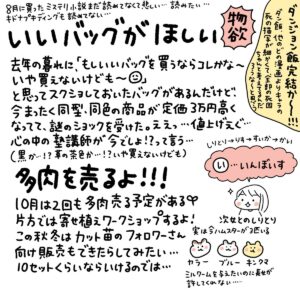 8月に買ったミステリ小説まだ読めてなくて悲しい…読みたい…
ギドナプキディングも読めてない…
いいバッグがほしい
物欲
去年の暮れに「もしいいバッグを買うならコレかな〜
いや買えないけども〜」
と思ってスクショしておいたバッグがあるんだけど、
今またく同型、同色の商品が定価3万円高く
なってて、謎のショックを受けた。ええっ…値上げえぐ…
心の中の塾講師が今でしょ!?って言う…
(黒か…!?茶の茶色か…!?いや買えないけども)
ダンジョン飯完結か〜!!!
多肉を売るよ!!!
10月は2回も多肉売る予定がある
片方では寄せ植えワークショップするよ!
この秋冬はカット苗のフォロワーさん
向け販売もできたらしてみたい…
10セットくらいならいけるのでは…
しりとり→りす→すいか→かい
い…いんぽいす
次女とのしりとり
実は今ハムスターが3匹いる
カラー
ブルー
キンクマ
ミルワームを与えたいのに長女が
許してくれない…